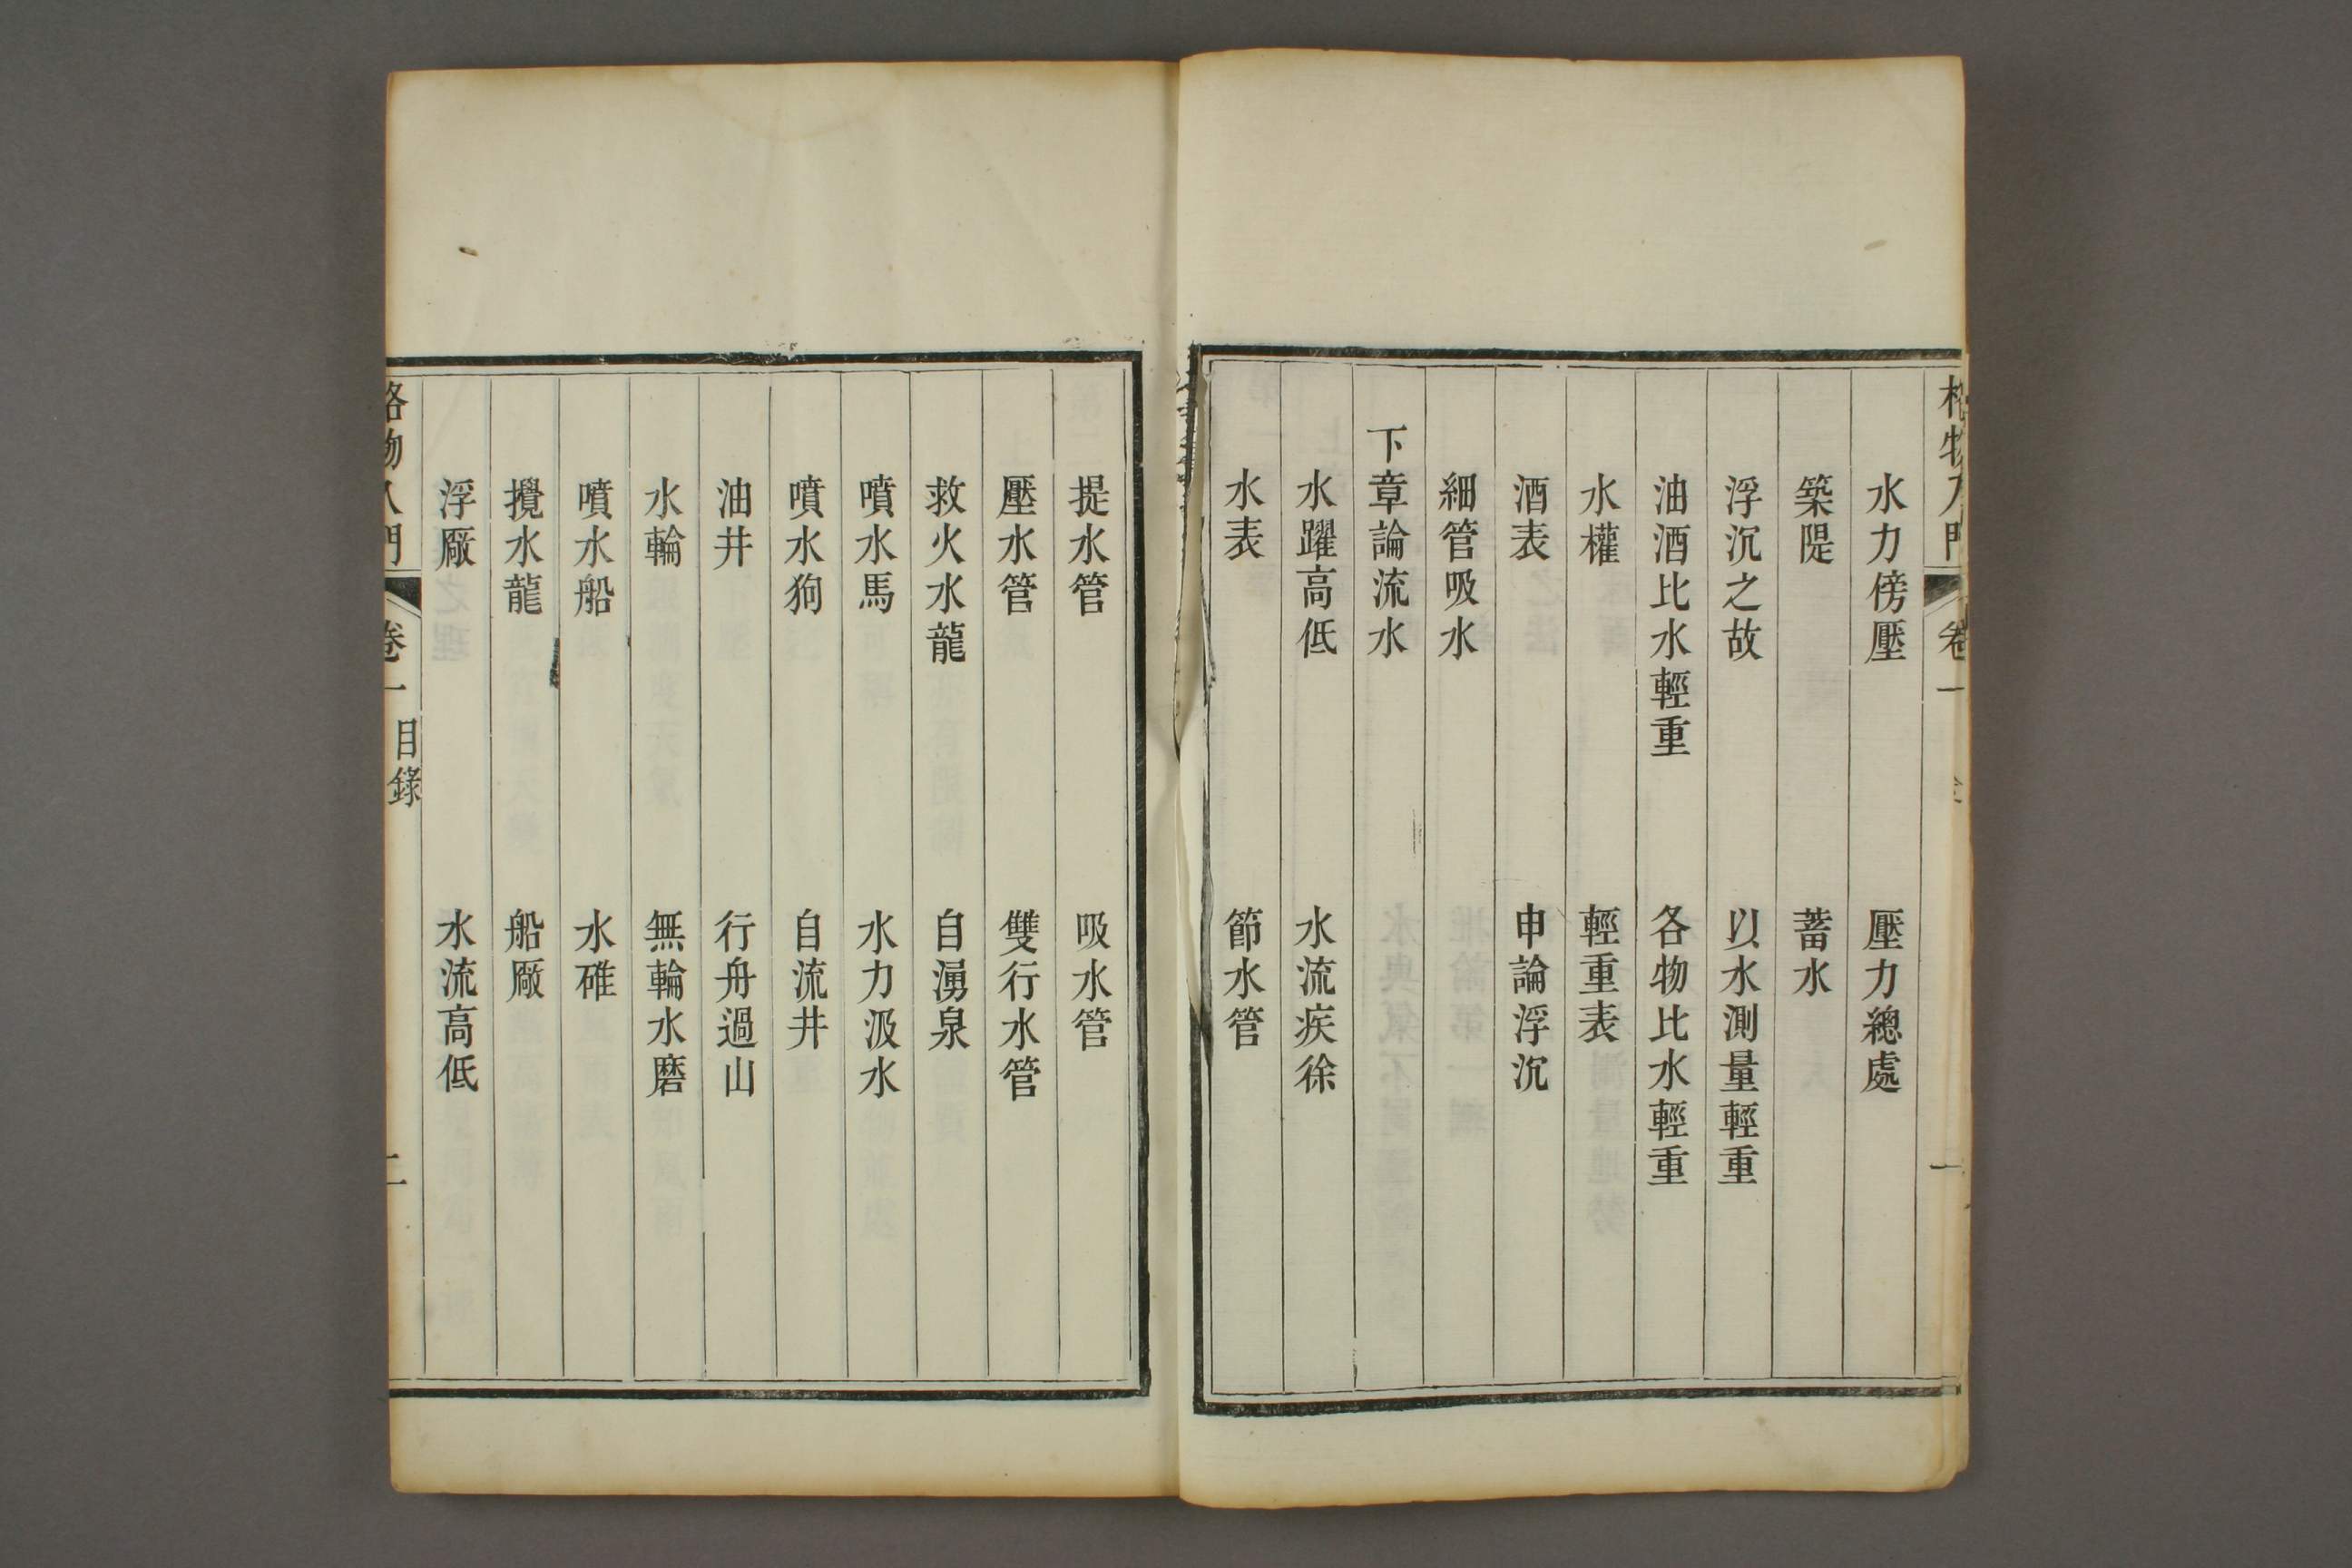 格物入門 卷一 一
水力傍壓 壓力總處
築隄 蓄水
浮沉之故 以水測量輕重
油酒比水輕重 各物比水輕重
水權 輕重表
酒表 申論浮沉
細管吸水
下章論流水
水躍高低 水流疾徐
水表 節水管
提水管 吸水管
壓水管 雙行水管
救火水龍 自湧泉
噴水馬 水力汲水
噴水狗 自流井
油井 行舟過山
水輪 無輪水磨
噴水船 水碓
攪水龍 船廠
浮廠 水流高低
格物入門 卷一 目錄 二